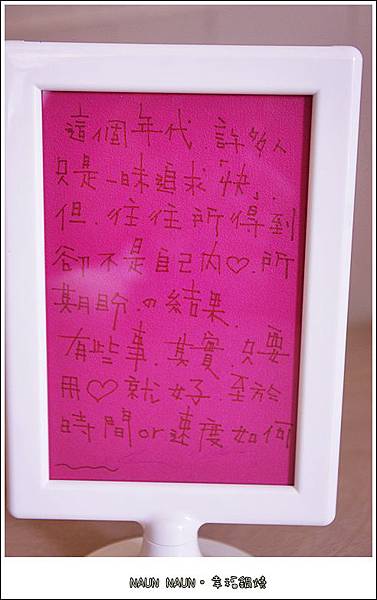 這個年代.許多人
只是一味追求「快」.
但.往往所得到
卻不是自己內♡.所
期盼の結果.
有些事.其實.只要
用♡就好.至於
時間or速度如何
NAUN NAUN。幸福鍋燒